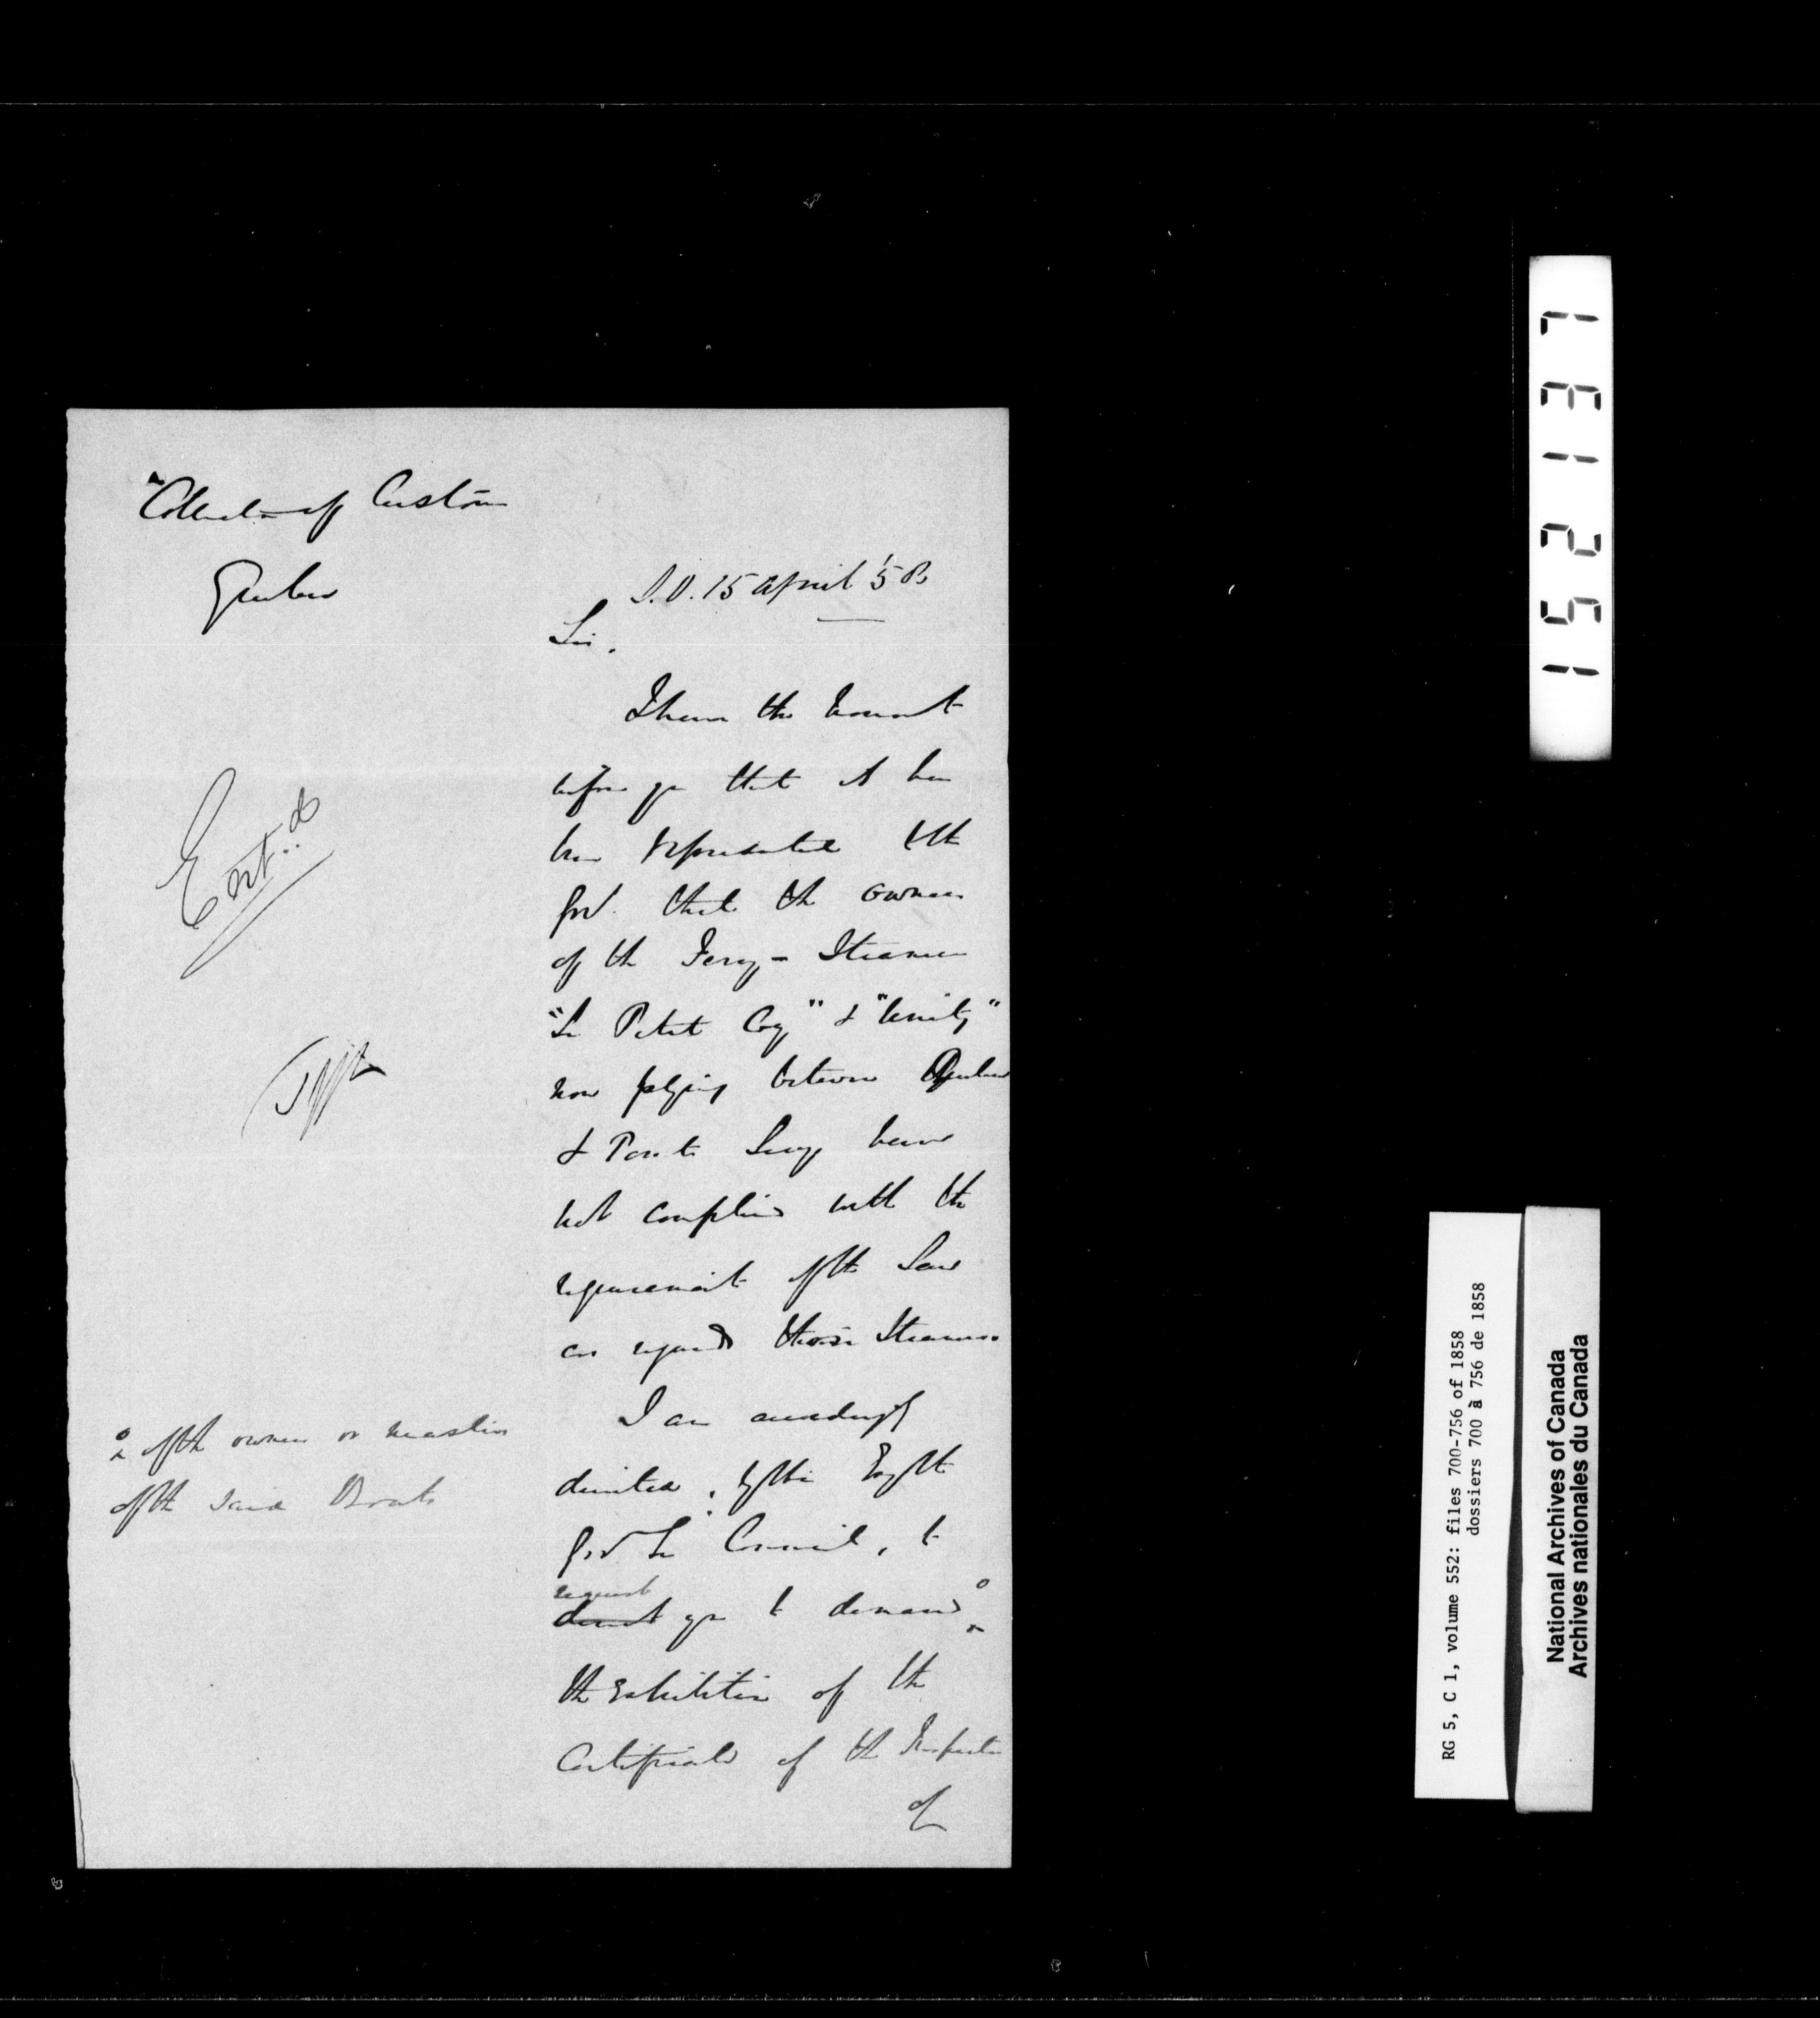 Collector of Customs
Quebec
S.O. 15 April '58
Sir,
I have the honor to
inform you that it has
been represented to the
Govt. that the owners
of the Ferry-Steamers
"Le Petit Coq" & "Unity"
now plying between Quebec
& Point Levy have
not complied with the
requirements of the Law
as regards those Steamers.
I am accordingly
directed, by His Excy the
Govr in Council, to
request
direct you to demand
of the owners or masters
of the said Boats
the exhibition of the
Certificate of the Inspector
of
Entd
1 5 2 1 3 7
RG 5, C 1, volume 552: files 700-756 of 1858
dossiers 700 à 756 de 1858
National Archives of Canada
Archives nationales du Canada